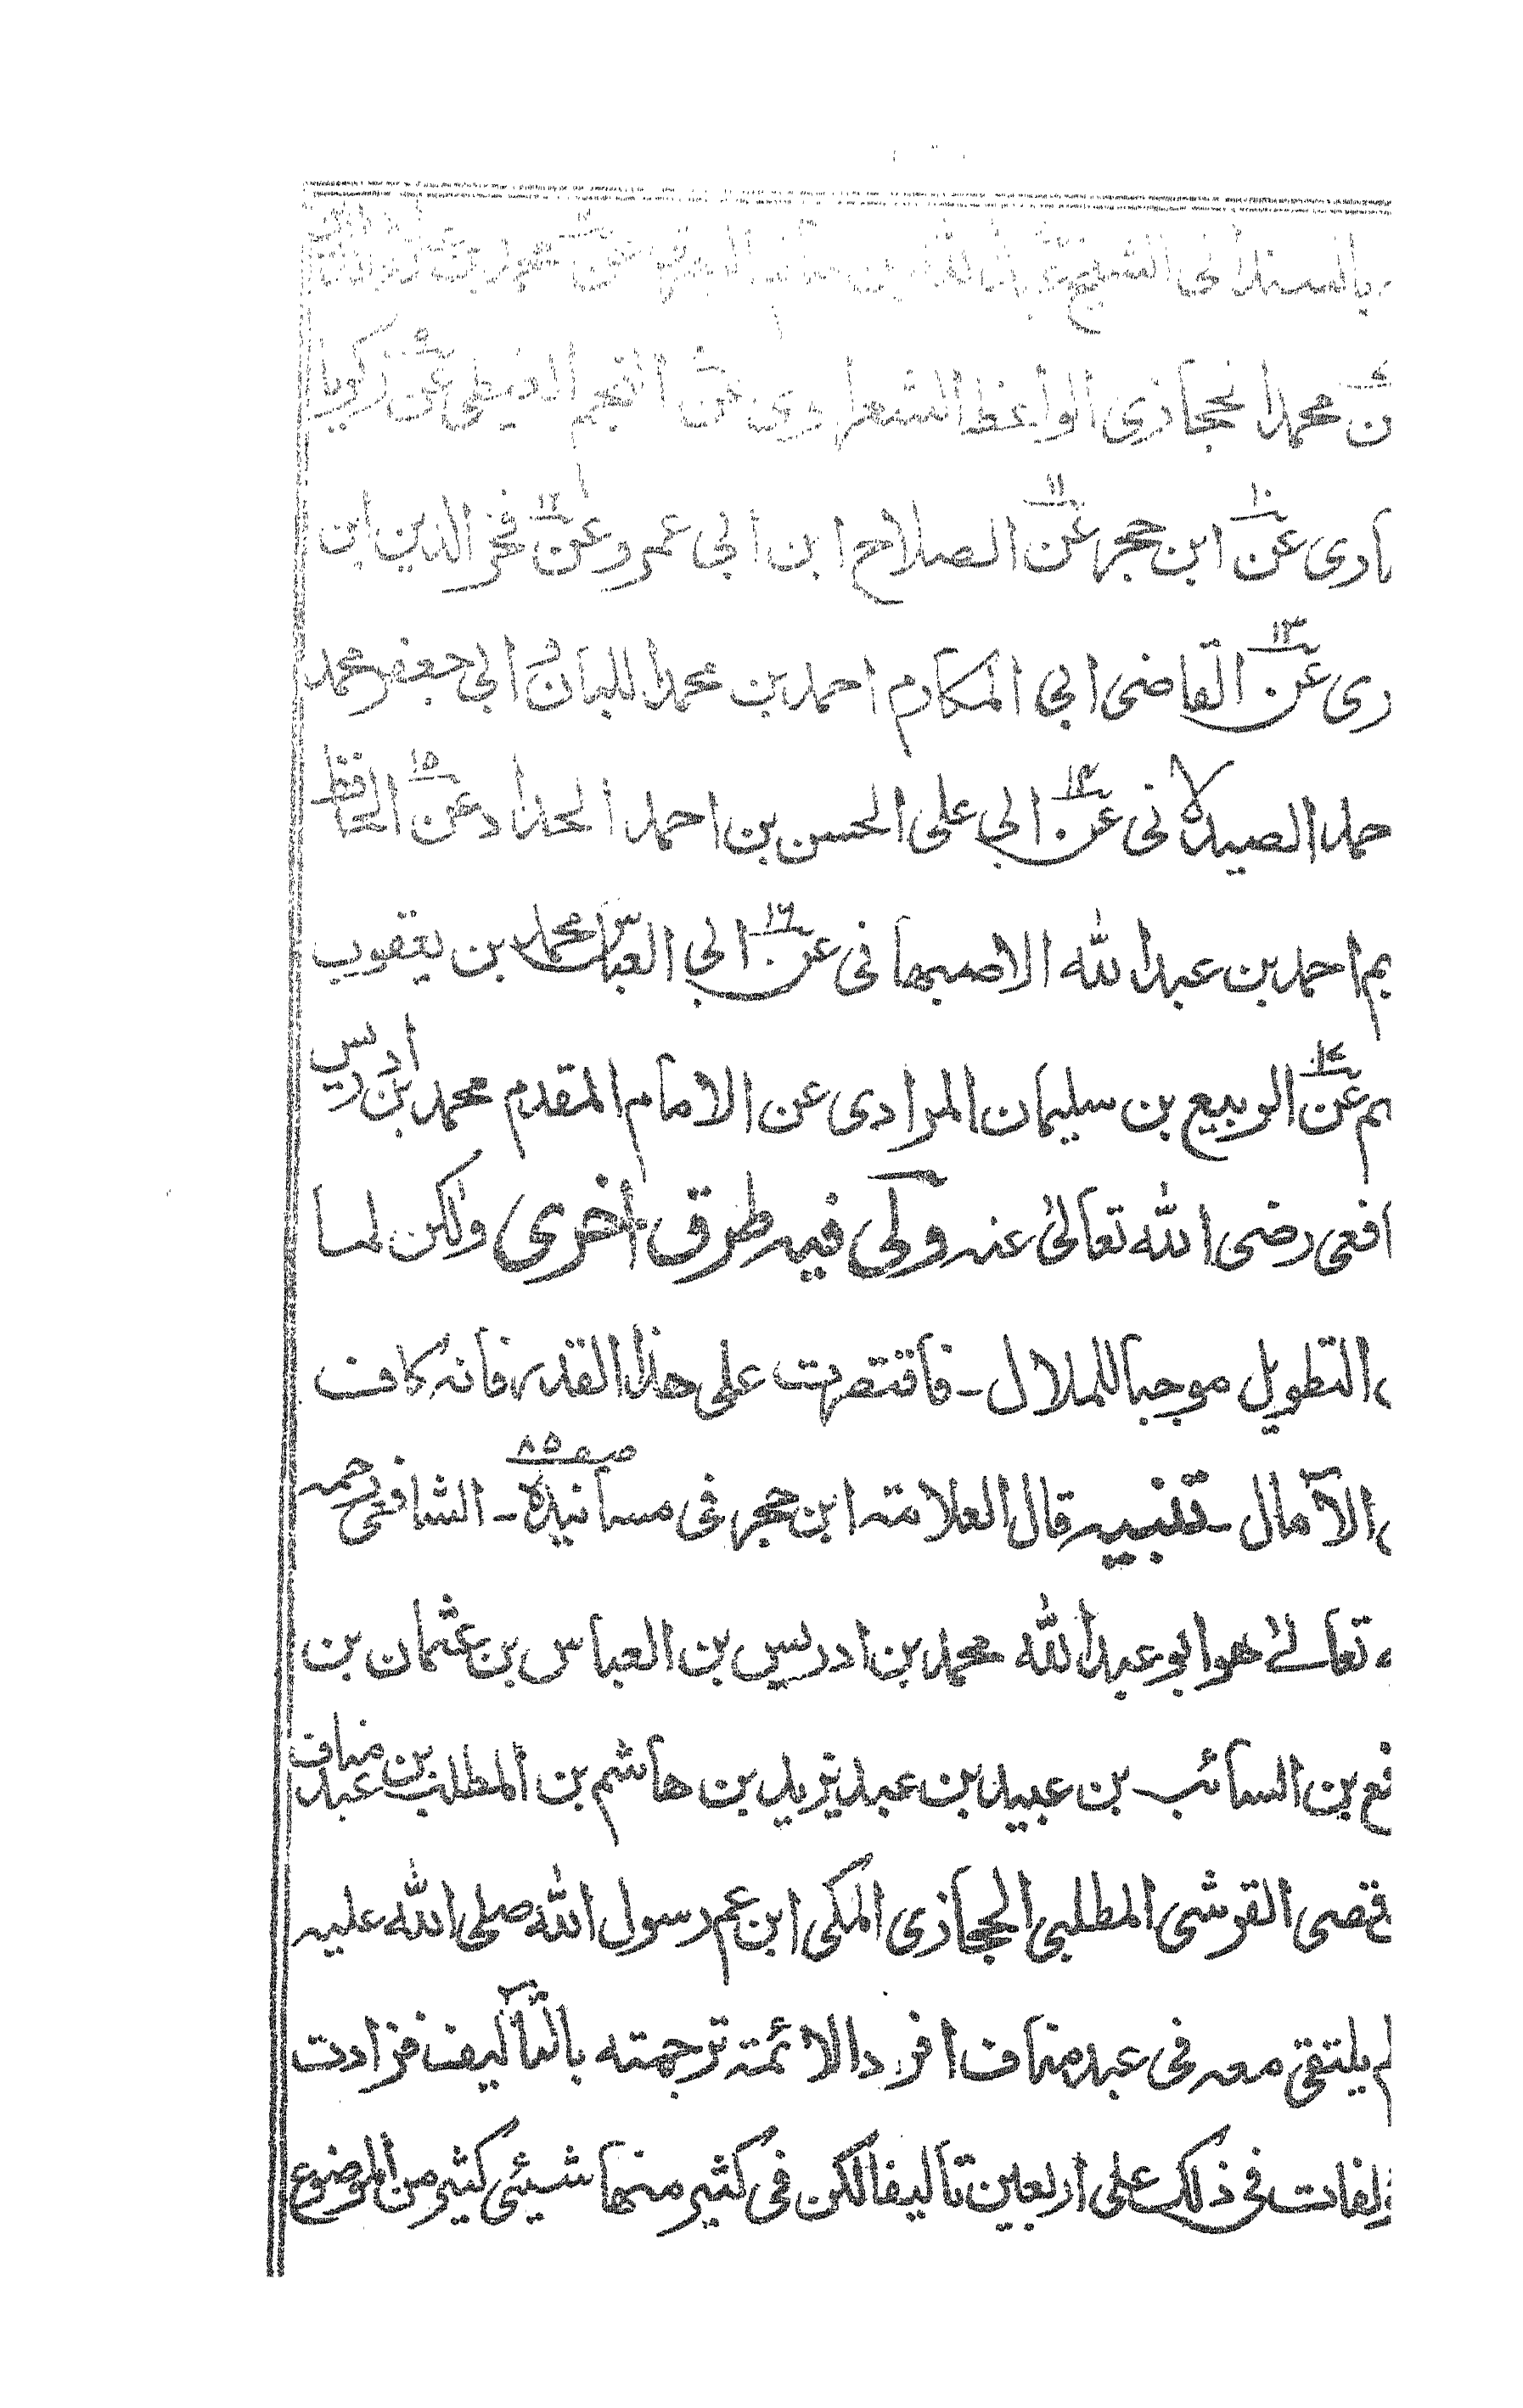 بالسند الى الشيخ عن محمد بن
ن محمد الحجازى الواعظ الشعراوى عن النجم الغيطى عن زكريا
ارى عن ابن حجر عن الصلاح ابن ابى عمرو عن فخر الدين ابن
رى عن القاضى ابى المكارم احمد بن محمد اللبان و ابى جعفر محمد
حمد الصيدلانى عن ابى على الحسن بن احمد الحداد عن الحافظ
يم احمد بن عبد الله الاصبهانى عن ابى العباس محمد بن يعقوب
م عن الربيع بن سليمان المرادى عن الامام المقدم محمد بن ادريس
افعى رضى الله تعالىٰ عنه ولى فيه طرق اخرى ولٰكن لما
التطويل موجبا للملال ـ فاقتصرت على هذا القدر فانه كاف
الآمال ـ تنبيه قال العلامة ابن حجر فى مسانيده صـ ٨٥ ـ الشافعى رحمه
ه تعالىٰ هو ابو عبد الله محمد بن ادريس بن العباس بن عثمان بن
فع بن السائب بن عبيد بن عبد يزيد بن هاشم بن المطلب بن عبد مناف
قصى القرشى المطلبى الحجازى المكى ابن عم رسول الله صلى الله عليه
لم يلتقى معه فى عبد مناف افرد الائمة ترجمته بالتآليف فزادت
ؤلفات فى ذلك على اربعين تاليفا لكن فى كثير منها شيئى كثير من الموضوع